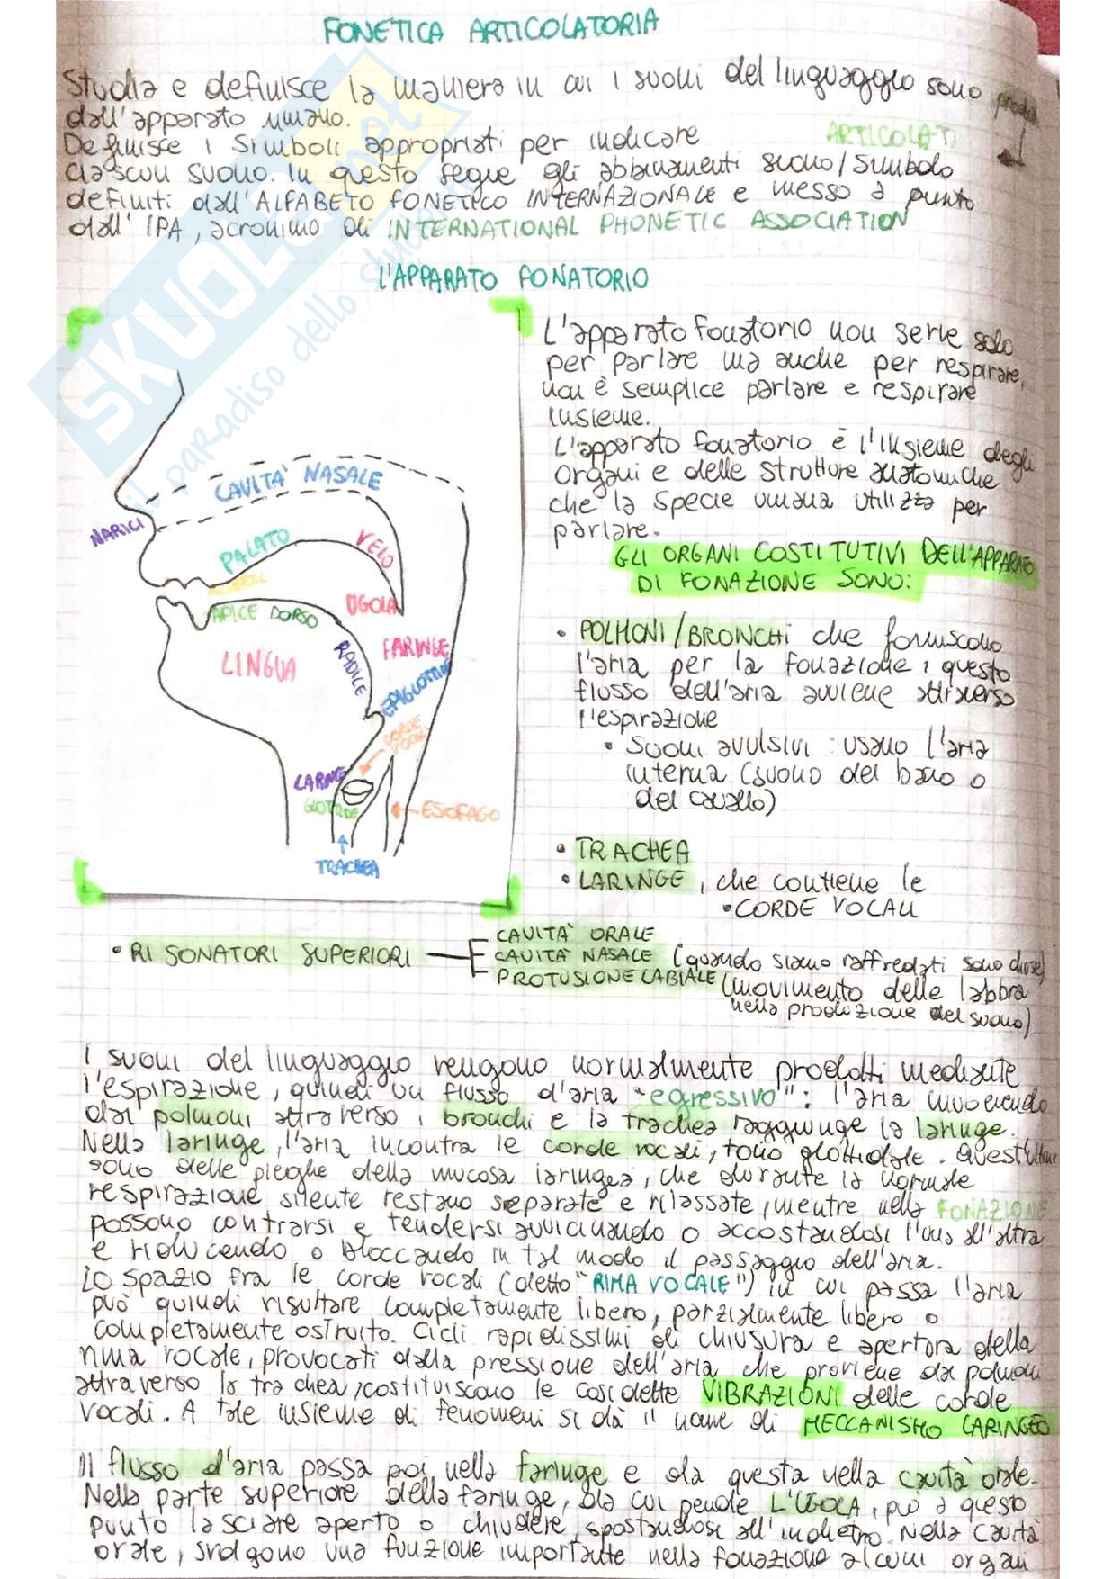 FONETICA ARTICOLATORIA
Studia e definisce la maniera in cui i suoni del linguaggio sono prodotti
dall'apparato umano.
ARTICOLATI
Definisce i simboli appropriati per indicare
ciascun suono. In questo segue gli abbinamenti suono/simbolo
definiti dall'ALFABETO FONETICO INTERNAZIONALE e messo a punto
dall'IPA, acronimo di INTERNATIONAL PHONETIC ASSOCIATION
L'APPARATO FONATORIO
SKUOLA.net
il paradiso dello
CAVITA' NASALE
NARICI
PALATO
VELO
APICE DORSO
UGOLA
LINGUA
RADICE
FARINGE
EPIGLOTTIDE
CORDE
VOCALI
LARINGE
GLOTTIDE
ESOFAGO
TRACHEA
L'apparato fonatorio non serve solo
per parlare ma anche per respirare,
non è semplice parlare e respirare
insieme.
L'apparato fonatorio è l'insieme degli
organi e delle strutture anatomiche
che la specie umana utilizza per
parlare.
GLI ORGANI COSTITUTIVI DELL'APPARATO
DI FONAZIONE SONO:
• POLMONI/BRONCHI che forniscono
l'aria per la fonazione, questo
flusso dell'aria avviene attraverso
l'espirazione
• Suoni avulsivi: usano l'aria
interna (suono del bacio o
del cavallo)
• TRACHEA
• LARINGE, che contiene le
• CORDE VOCALI
• RISONATORI SUPERIORI
CAVITA' ORALE
CAVITA' NASALE (quando siamo raffredati sono chiuse)
PROTUSIONE LABIALE (movimento delle labbra
nella produzione del suono)
I suoni del linguaggio vengono normalmente prodotti mediante
l'espirazione, quindi un flusso d'aria "egressivo": l'aria muovendo
dai polmoni attraverso i bronchi e la trachea raggiunge la laringe.
Nella laringe, l'aria incontra le corde vocali, tono glottidale. Quest'ultime
sono delle pieghe della mucosa laringea, che durante la normale
respirazione silente restano separate e rilassate, mentre nella FONAZIONE
possono contrarsi e tendersi avvicinando o accostandosi l'una all'altra
e riducendo o bloccando in tal modo il passaggio dell'aria.
Lo spazio fra le corde vocali (detto "RIMA VOCALE") in cui passa l'aria
può quindi risultare completamente libero, parzialmente libero o
completamente ostruito. Cicli rapidissimi di chiusura e apertura della
rima vocale, provocati dalla pressione dell'aria che proviene dai polmoni
attraverso la trachea, costituiscono le cosidette VIBRAZIONI delle corde
vocali. A tale insieme di fenomeni si dà il nome di MECCANISMO LARINGEO
Il flusso d'aria passa poi nella faringe e da questa nella cavità orale.
Nella parte superiore della faringe, da cui pende L'UGOLA, può a questo
punto lasciare aperto o chiudere, spostandosi all'indietro. Nella cavità
orale, svolgono una funzione importante nella fonazione alcuni organi